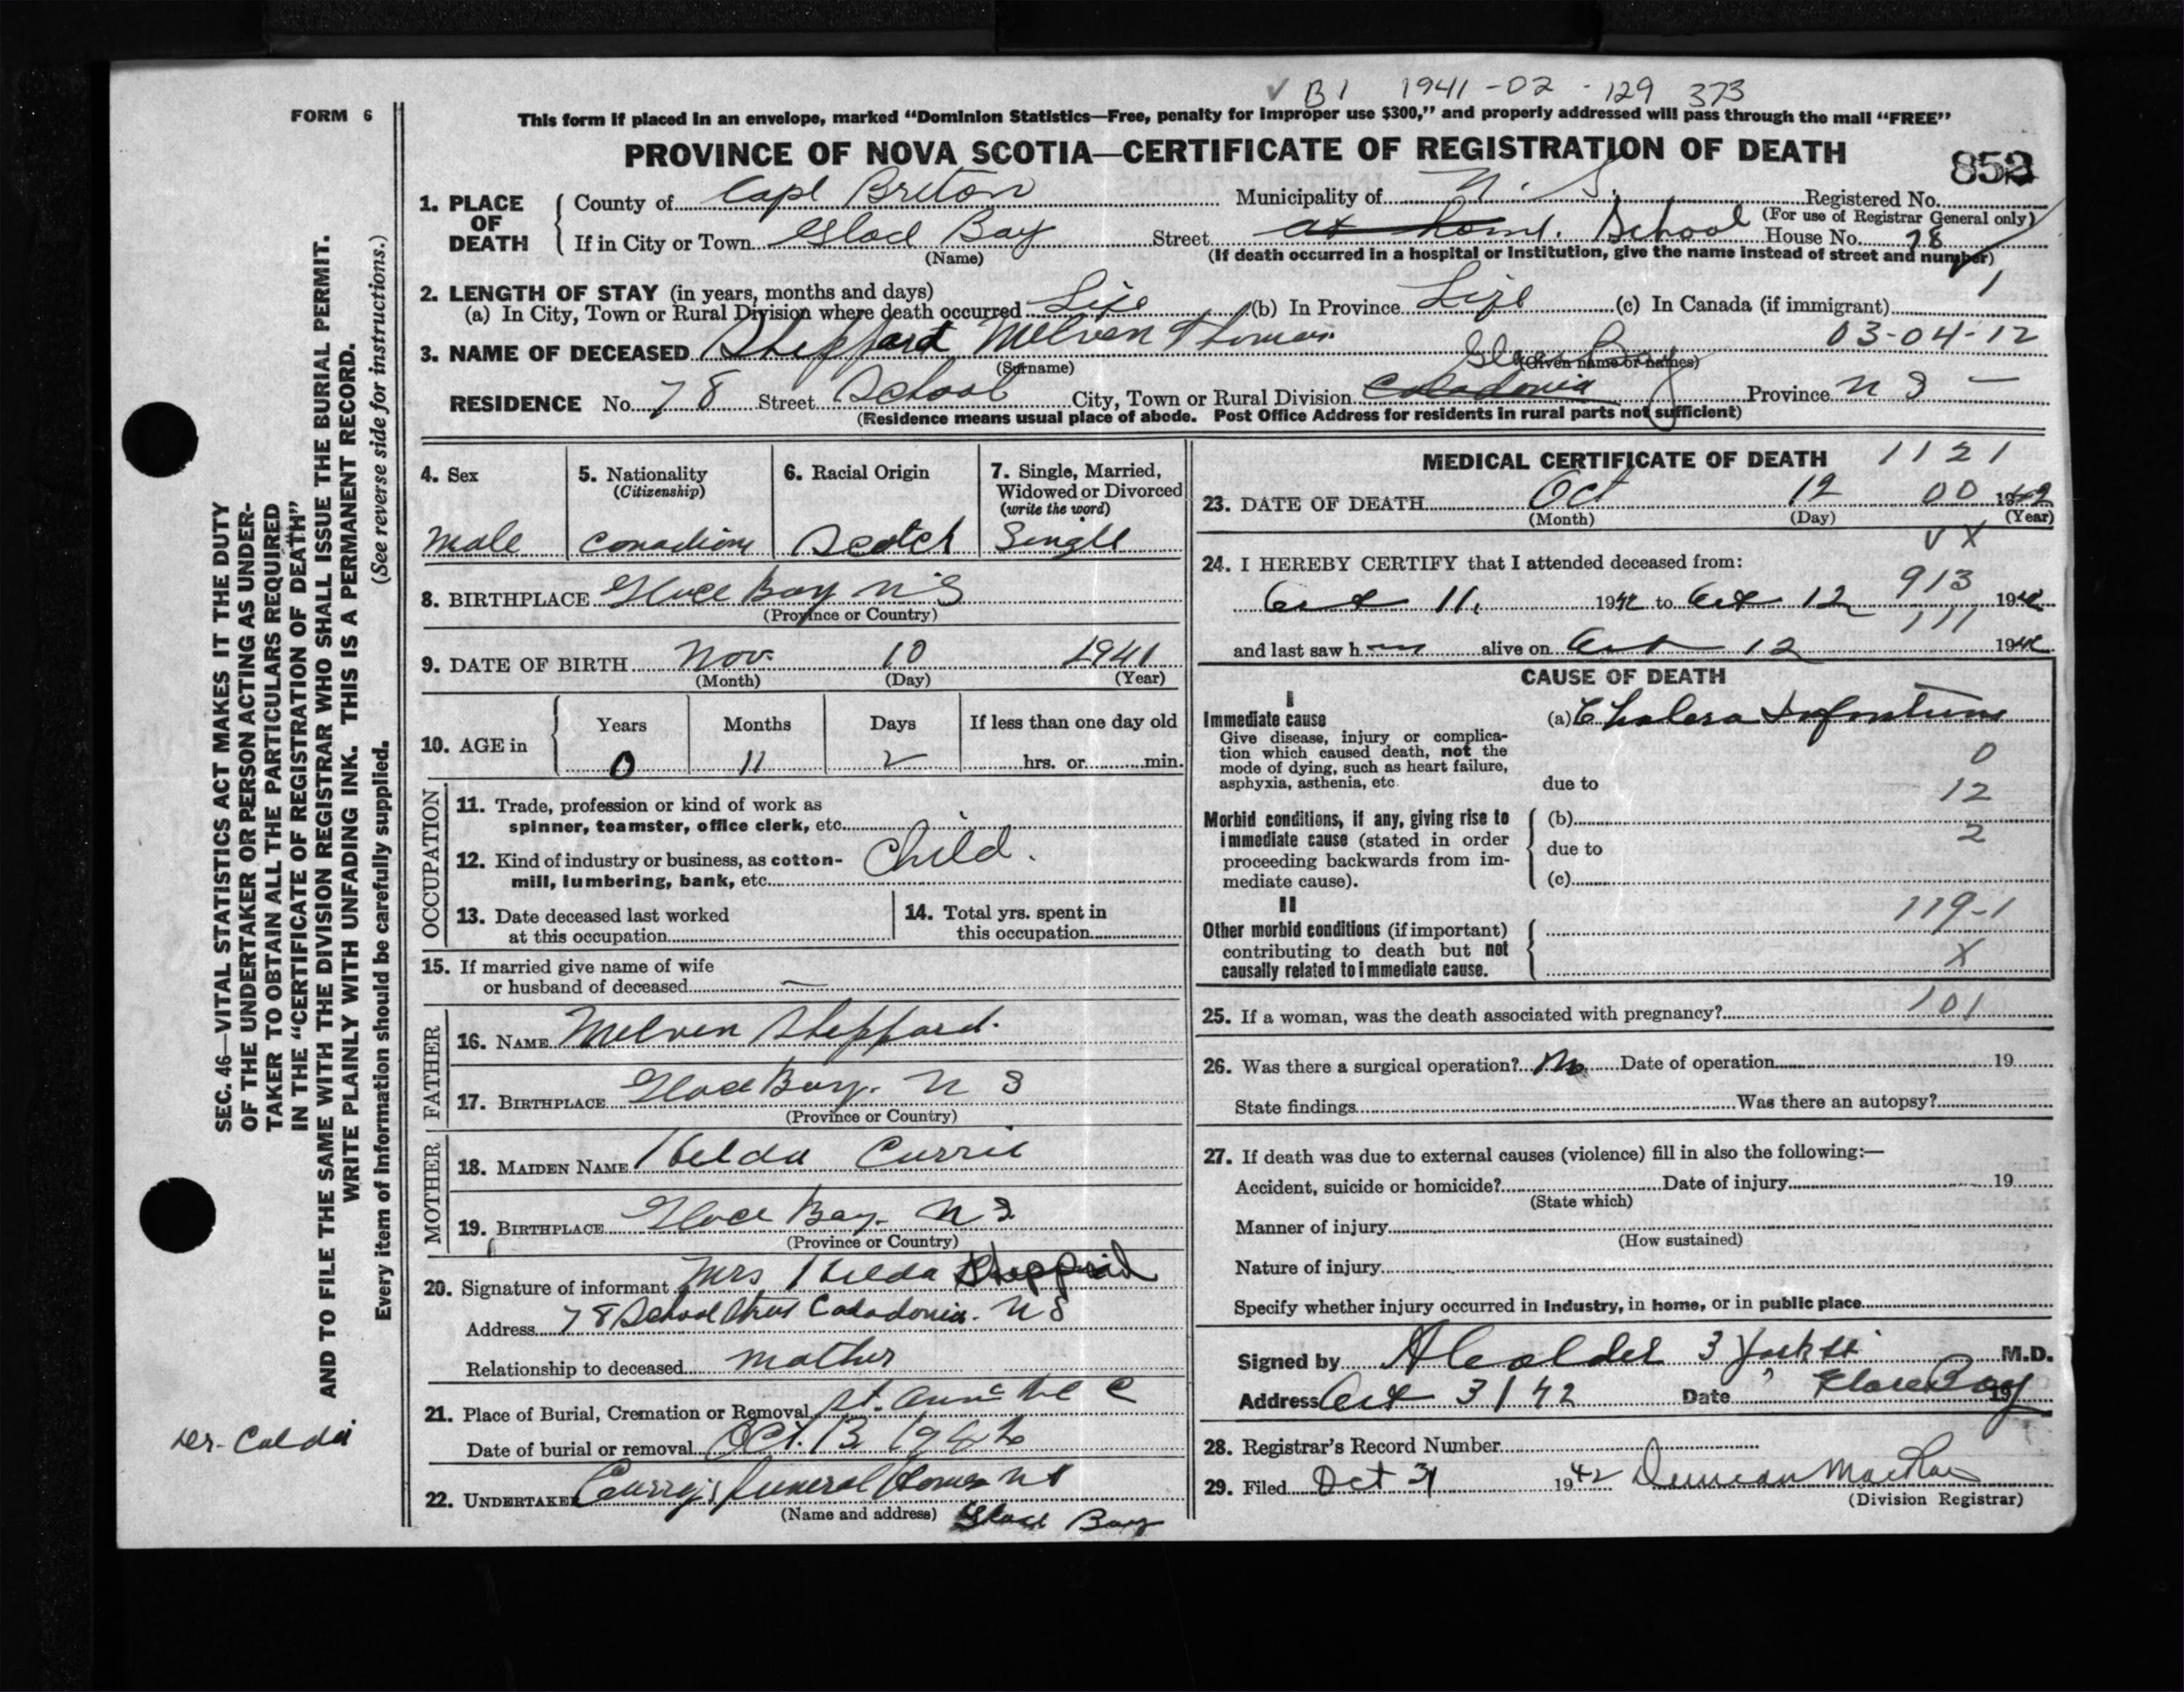 B1 1941-02-129 373
FORM 6
This form if placed in an envelope, marked “Dominion Statistics—Free, penalty for improper use $300,” and properly addressed will pass through the mail “FREE”
PROVINCE OF NOVA SCOTIA—CERTIFICATE OF REGISTRATION OF DEATH
852
1. PLACE OF DEATH
County of Cape Breton Municipality of N. S. Registered No.
(For use of Registrar General only)
If in City or Town Glace Bay Street at home. School House No. 78
(Name) (If death occurred in a hospital or institution, give the name instead of street and number)
2. LENGTH OF STAY (in years, months and days)
(a) In City, Town or Rural Division where death occurred Life (b) In Province Life (c) In Canada (if immigrant)
1
3. NAME OF DECEASED Sheppard Melven Thomas 03-04-12
(Surname) (Given name or names)
Glace Bay
RESIDENCE No. 78 Street School City, Town or Rural Division Caladonia Province N S —
(Residence means usual place of abode. Post Office Address for residents in rural parts not sufficient)
4. Sex
Male
5. Nationality
(Citizenship)
Canadian
6. Racial Origin
Scotch
7. Single, Married,
Widowed or Divorced
(write the word)
Single
8. BIRTHPLACE Glace Bay N S
(Province or Country)
9. DATE OF BIRTH Nov. 10 1941
(Month) (Day) (Year)
10. AGE in
Years Months Days If less than one day old
0 11 2 hrs. or min.
OCCUPATION
11. Trade, profession or kind of work as
spinner, teamster, office clerk, etc.
12. Kind of industry or business, as cotton-
mill, lumbering, bank, etc.
Child.
13. Date deceased last worked
at this occupation
14. Total yrs. spent in
this occupation
15. If married give name of wife
or husband of deceased —
FATHER
16. NAME Melven Sheppard.
17. BIRTHPLACE Glace Bay. N S
(Province or Country)
MOTHER
18. MAIDEN NAME Hilda Currie
19. BIRTHPLACE Glace Bay. N S
(Province or Country)
20. Signature of informant Mrs Hilda Sheppard
Address 78 School Street Caladonia. N S
Relationship to deceased Mother
21. Place of Burial, Cremation or Removal St. Anns
Date of burial or removal Oct. 13 1942
22. UNDERTAKER Curry's Funeral Home N S
(Name and address) Glace Bay
MEDICAL CERTIFICATE OF DEATH 1121
23. DATE OF DEATH Oct 12 00 1942
(Month) (Day) (Year)
V X
24. I HEREBY CERTIFY that I attended deceased from:
913
Oct 11, 1942 to Oct 12 1942
111
and last saw h im alive on Oct 12 1942
CAUSE OF DEATH
I
Immediate cause
Give disease, injury or complica-
tion which caused death, not the
mode of dying, such as heart failure,
asphyxia, asthenia, etc.
(a) Cholera Infantum
0
due to
12
Morbid conditions, if any, giving rise to
immediate cause (stated in order
proceeding backwards from im-
mediate cause).
(b)
2
due to
(c)
II
119-1
Other morbid conditions (if important)
contributing to death but not
causally related to immediate cause.
X
25. If a woman, was the death associated with pregnancy? 101
26. Was there a surgical operation? No Date of operation 19
State findings Was there an autopsy?
27. If death was due to external causes (violence) fill in also the following:—
Accident, suicide or homicide? Date of injury 19
(State which)
Manner of injury
(How sustained)
Nature of injury
Specify whether injury occurred in industry, in home, or in public place
Signed by A Calder 3 York St M.D.
Address Oct 31 42 Date Glace Bay 19
28. Registrar's Record Number
29. Filed Oct 31 1942 Duncan MacRae
(Division Registrar)
SEC. 46—VITAL STATISTICS ACT MAKES IT THE DUTY
OF THE UNDERTAKER OR PERSON ACTING AS UNDER-
TAKER TO OBTAIN ALL THE PARTICULARS REQUIRED
IN THE “CERTIFICATE OF REGISTRATION OF DEATH”
AND TO FILE THE SAME WITH THE DIVISION REGISTRAR WHO SHALL ISSUE THE BURIAL PERMIT.
WRITE PLAINLY WITH UNFADING INK. THIS IS A PERMANENT RECORD.
Every item of information should be carefully supplied. (See reverse side for instructions.)
Dr. Calder